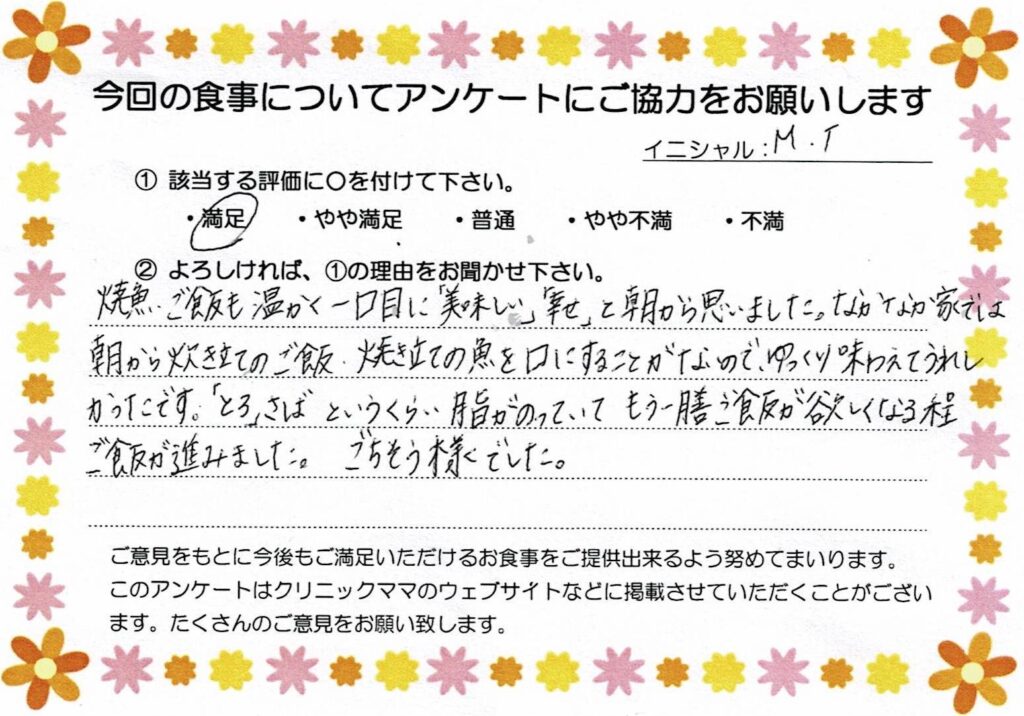 今回の食事についてアンケートにご協力をお願いします
イニシャル:M.T
① 該当する評価に〇を付けて下さい。
・満足 ・やや満足 ・普通 ・やや不満 ・不満
② よろしければ、①の理由をお聞かせ下さい。
焼魚・ご飯も温かく一口目に「美味しい」「幸せ」と朝から思いました。なかなか家では
朝から炊き立てのご飯・焼き立ての魚を口にすることがないので、ゆっくり味わえてうれし
かったです。「とろ」さばというくらい脂がのっていてもう一膳ご飯が欲しくなる程
ご飯が進みました。 ごちそう様でした。
ご意見をもとに今後もご満足いただけるお食事をご提供出来るよう努めてまいります。
このアンケートはクリニックママのウェブサイトなどに掲載させていただくことがござい
ます。たくさんのご意見をお願い致します。